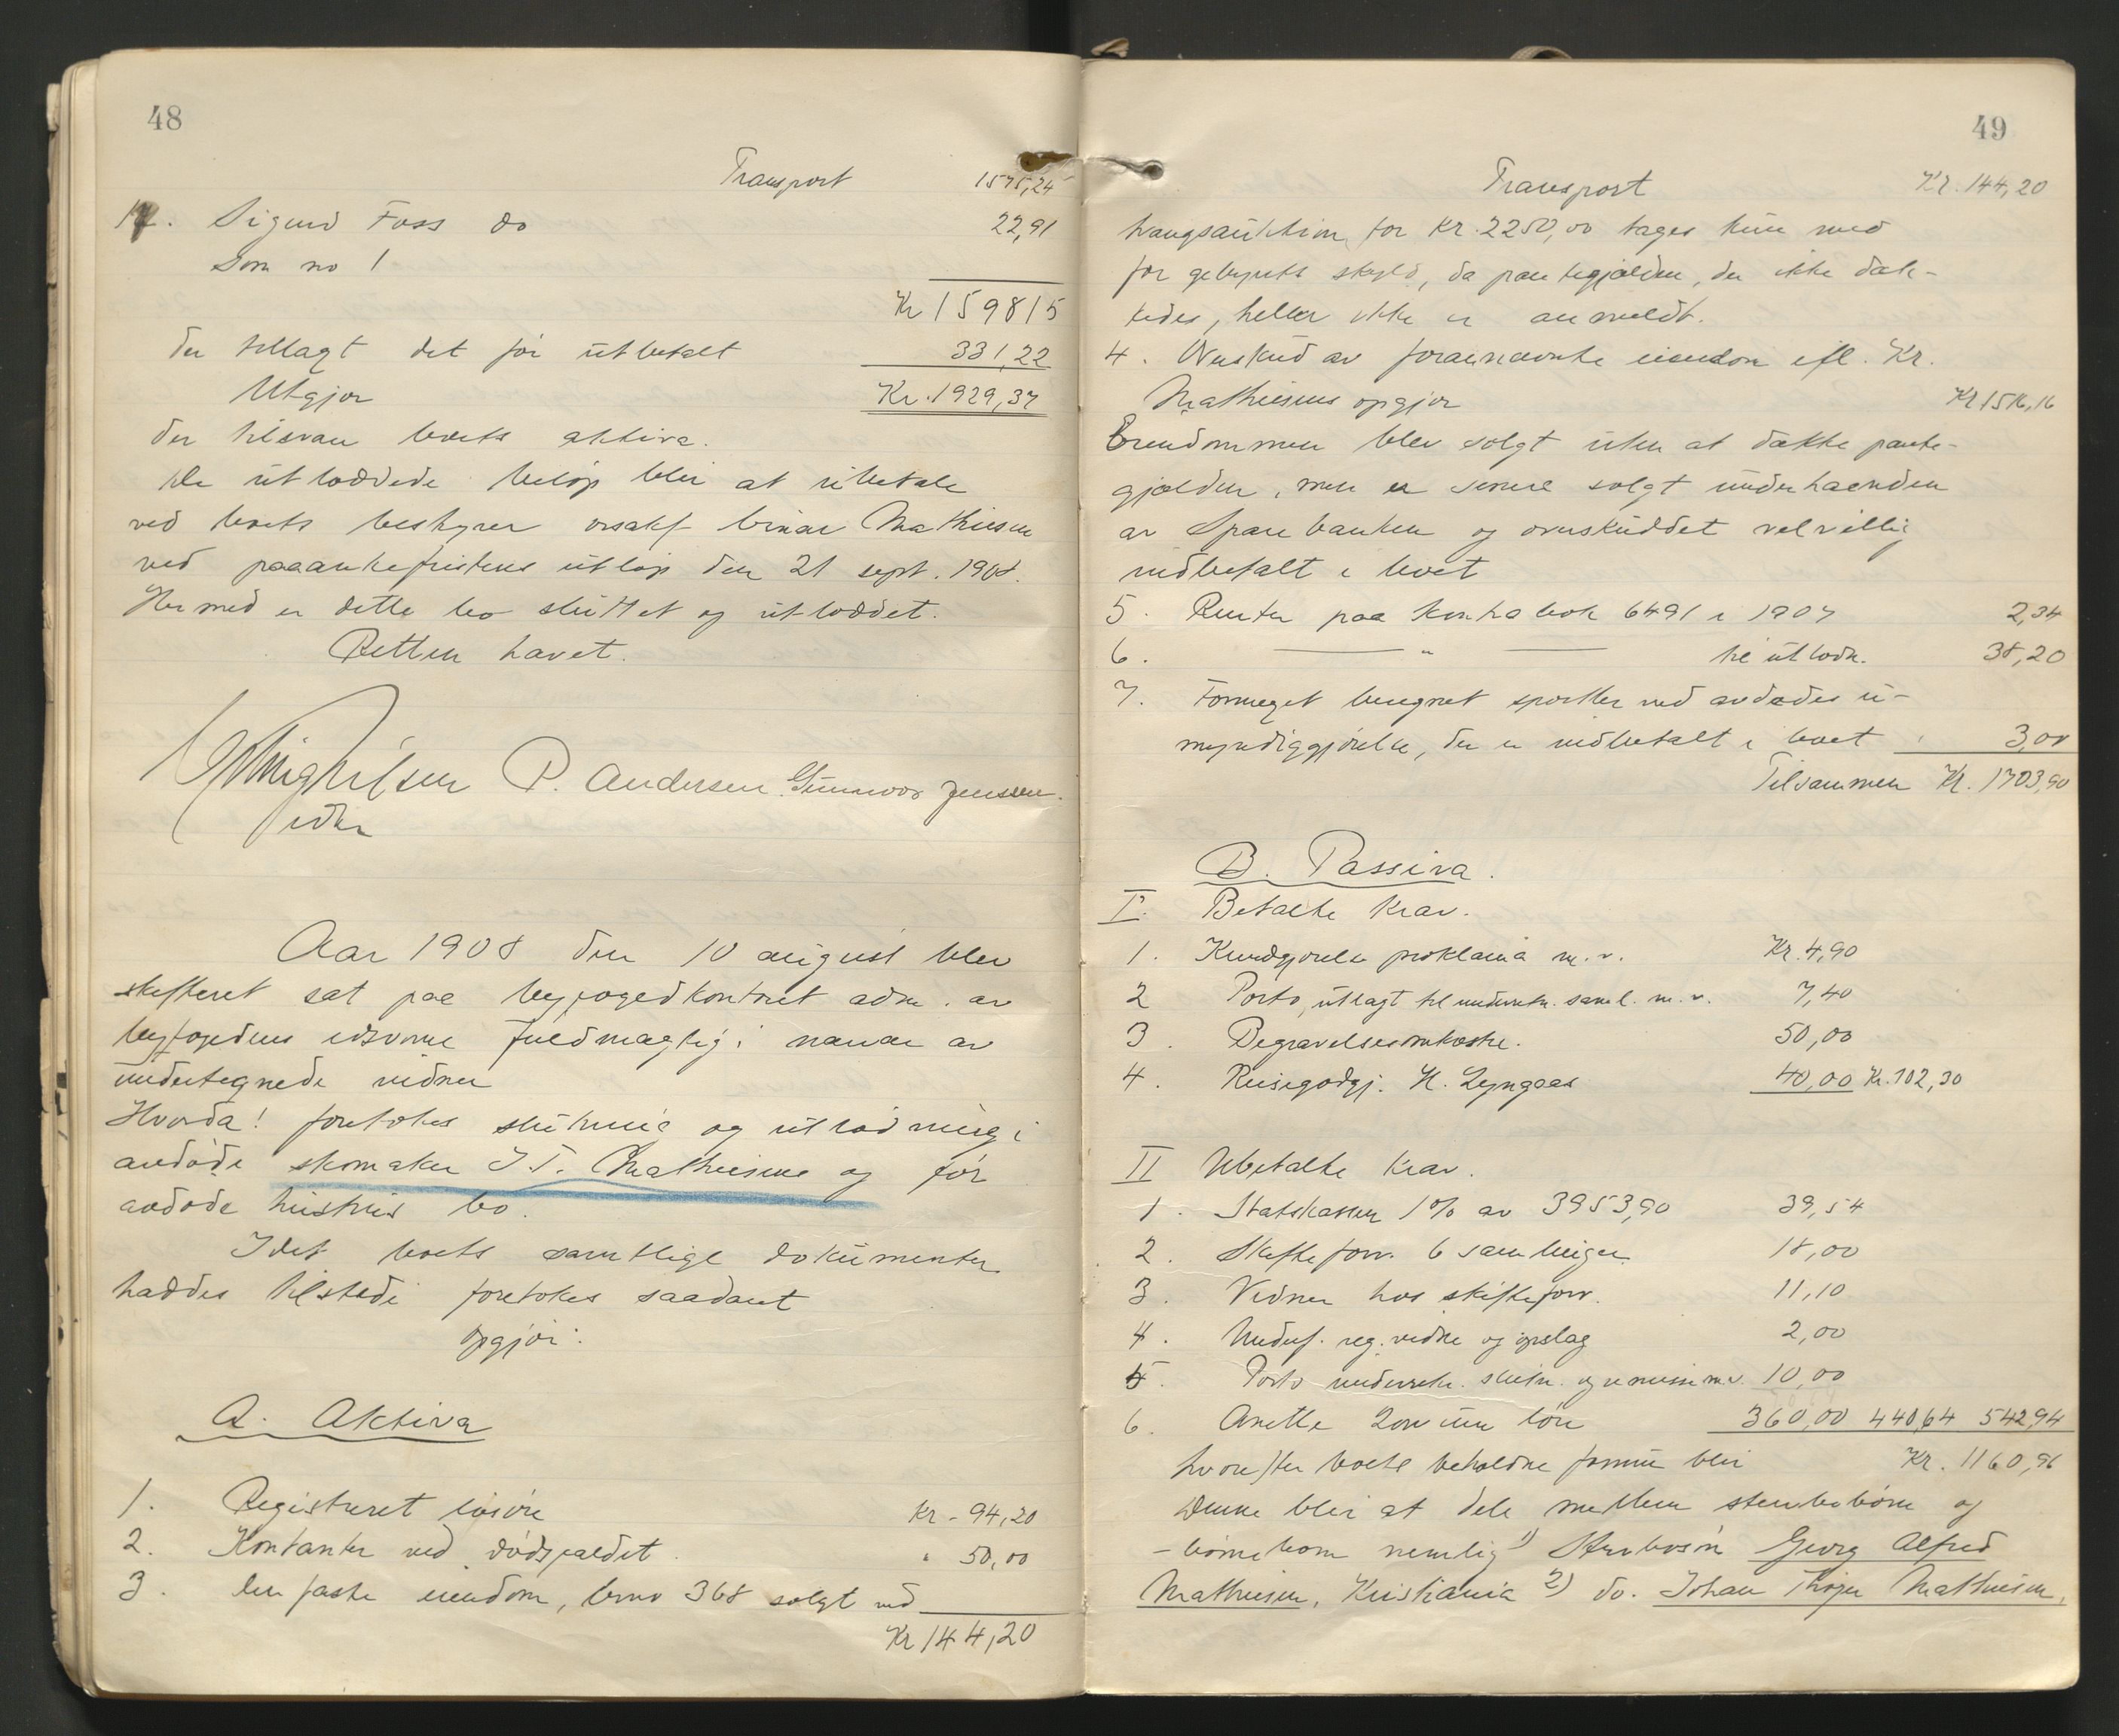 48
Transport 1575,24
17. Sigurd Foss do 22,91
Som no 1
Kr 159815
der tillagt det før utbetalt 331,22
Utgjør Kr. 1929,37
der tilsvarer boets aktiva.
De utloddede beløp blir at utbetale
ved boets bestyrer orsakf. Einar Mathiesen
ved paaankefristens utløp den 21 sept. 1908.
Hermed er dette bo sluttet og utloddet.
Retten hævet.
P. Andersen. Gunnvor Jensen.
Aar 1908 den 10 august blev
skifteret sat paa byfogedkontoret adm. av
byfogedens edsvorne fuldmægtig i nærvær av
undertegnede vidner
Hvorda! foretokes slutning og utlodning i
avdøde skomaker J. T. Mathiesens og før
avdøde hustrus bo.
Idet boets samtlige dokumenter
haddes tilstede foretokes saadant
opgjør:
A. Aktiva
1. Registreret løsøre Kr - 94,20
2. Kontanter ved dødsfaldet. " 50,00
3. Den faste eiendom, brno 368 solgt ved
Kr 144,20
49
Transport Kr. 144,20
tvangsauktion for Kr. 2250,00 tages kun med
for gebyrets skyld, da pantegjælden, der ikke dæk-
kedes, heller ikke er anmeldt.
4. Overskud av forannævnte eiendom efl. Kr.
Mathiesens opgjør Kr 1516,16
Eiendommen blev solgt uten at dække pante-
gjælden, men er senere solgt underhaanden
av Sparebanken og overskuddet velvillig
indbetalt i boet
5. Renter paa kontrabok 6491 i 1907 2,34
6. " til utlodn. 38,20
7. Formeget beregnet sportler ved avdødes u-
myndiggjørelse, der er indbetalt i boet 3,00
Tilsammen Kr. 1703,90
B. Passiva.
I. Betalte krav.
1. Kundgjørelse proklama m.v. Kr. 4,90
2 Porto, utlagt til underretn. saml. m.v. 7,40
3. Begravelsesomkostn. 50,00
4. Reisegodtgj. H. Lyngaas 40,00 Kr. 102,30
II Ubetalte krav.
1. Statskassen 1% av 3953,90 39,54
2. Skifteforv. 6 samlinger 18,00
3. Vidner hos skifteforv. 11,10
4. Underf. reg. vidne og opslag 2,00
5. Porto underretn. slutn. og remisse m.v. 10,00
6. Anette løn 360,00 440,64 542,94
hvorefter boets beholdne formue blir Kr. 1160,96
Denne blir at dele mellem stervbobørn og
-børnebørn nemlig 1) Stervbosøn Georg Alfred
Mathiesen, Kristiania 2) do. Johan Mathiesen,